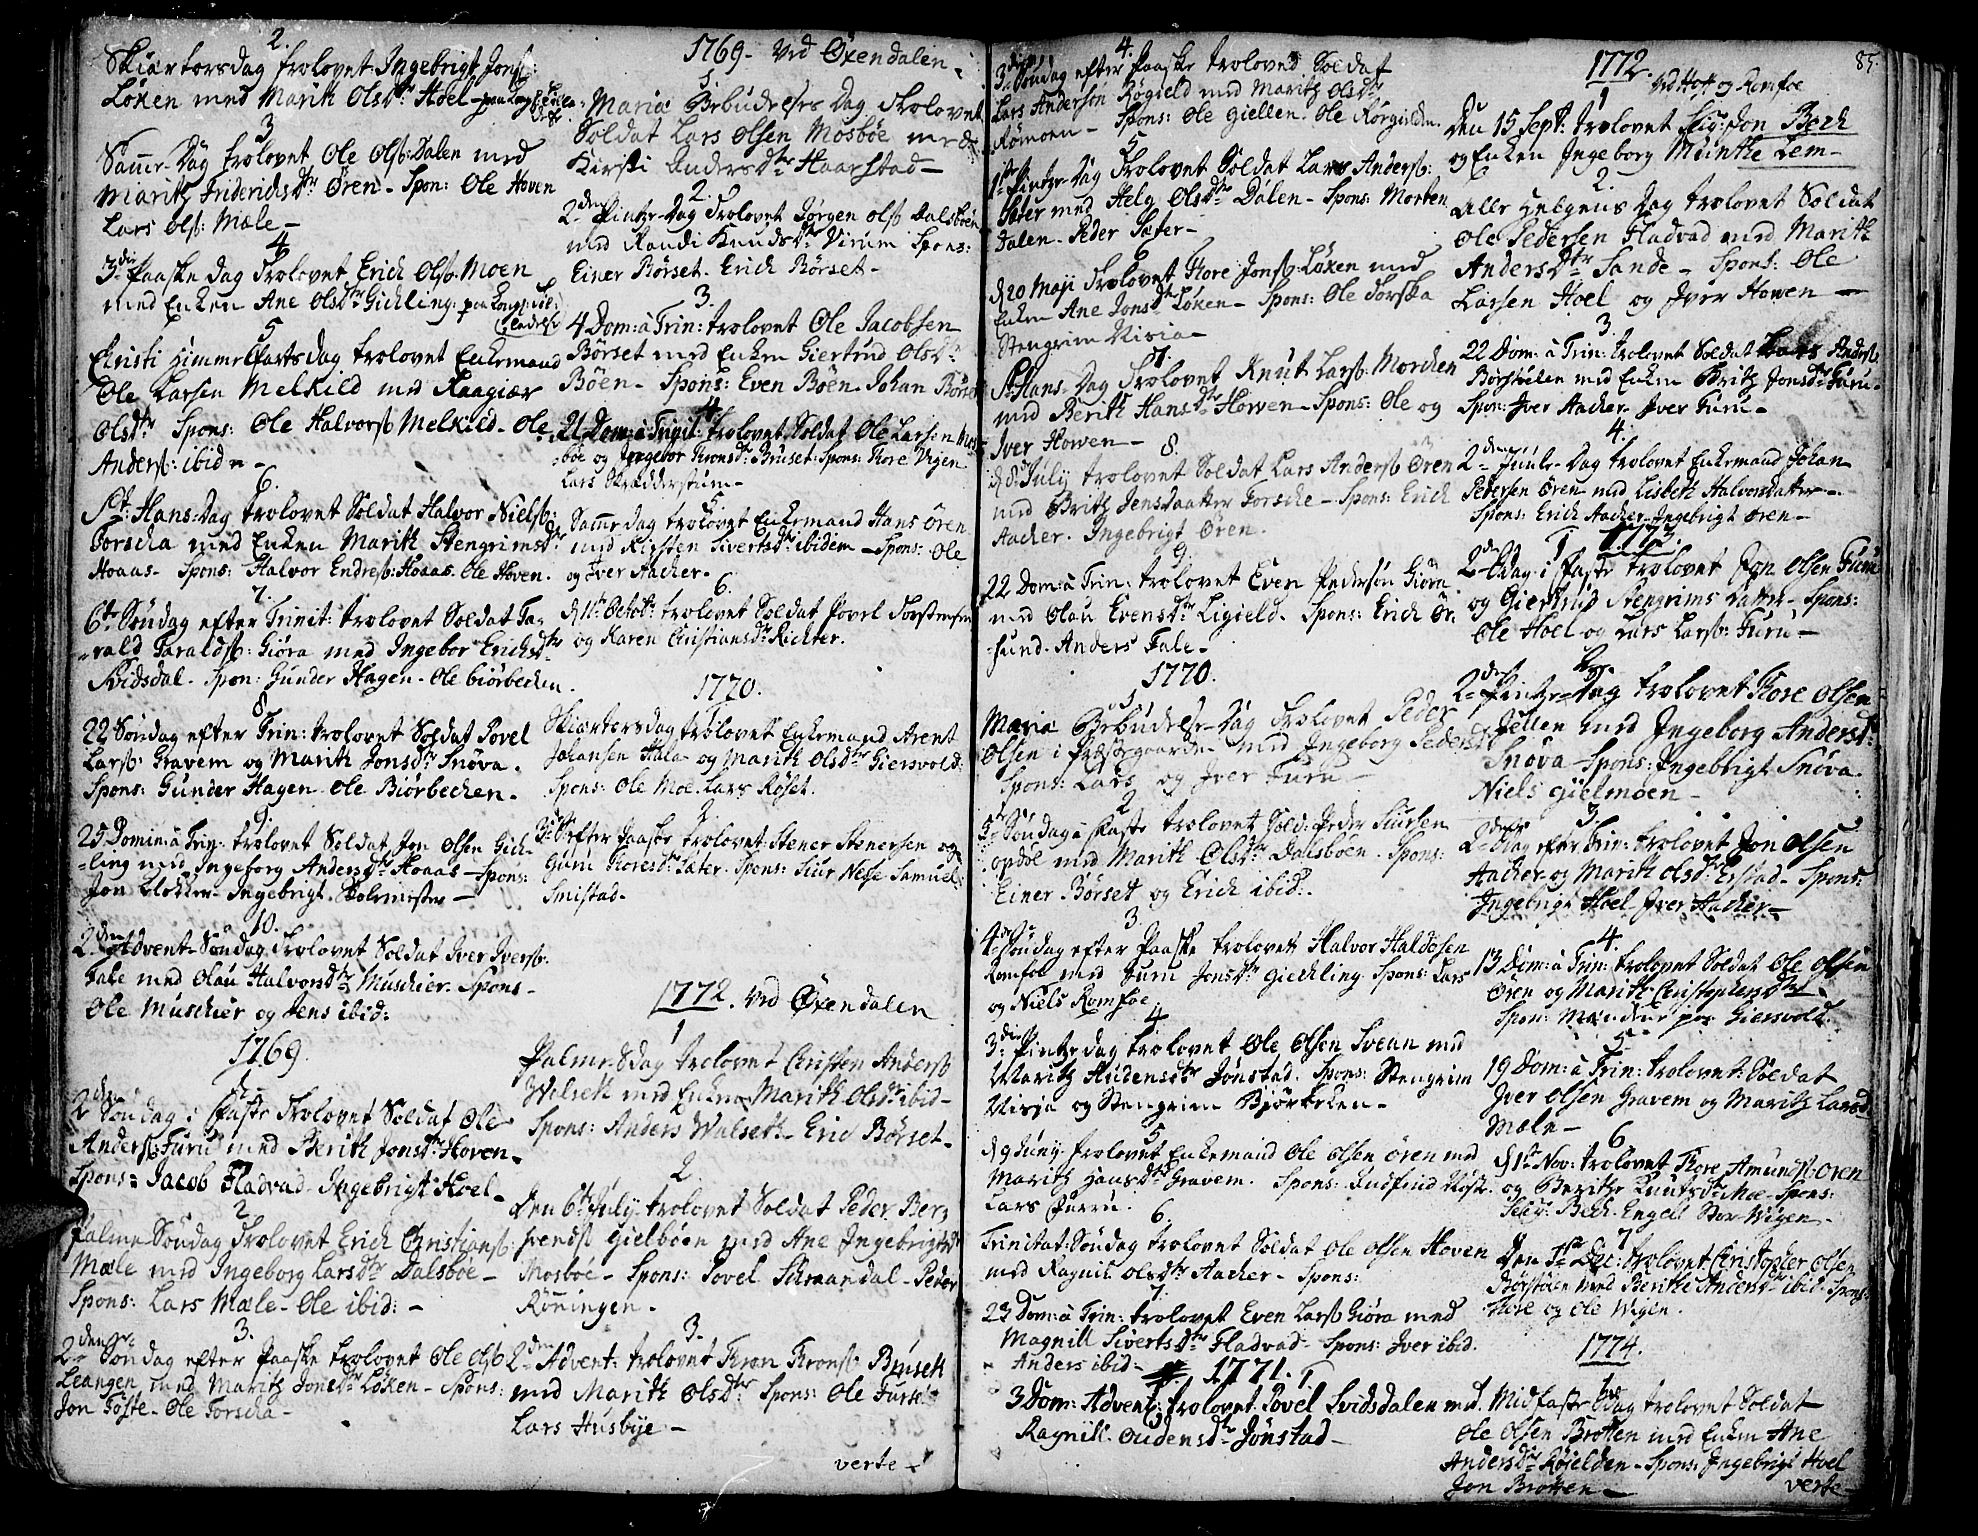 2.
Skiærtorsdag trolovet Ingebrigt Jonsß:
Loken med Marith Olsdtr Hoel
3
Samme Dag trolovet Ole Olsß: Dalen med
Maritz Friderichsdtr Ören - Spon: Ole Hoven
Lars Olsß: Mæle -
4
3die Paaske Dag Trolovet Erich Olsß: Moen
med Enken Ane Olsdtr Gickling
5
Christi Himmelfarts dag trolovet Enkemand
Ole Larsen Melkild med Raagiær
Olsdtr Spons: Ole Halvorsß Melkild - Ole
Andersß: ibid -
6.
St: Hans-Dag trolovet Soldat Halvor Nielsß:
Torscha med Enken Marith Stengrimsdtr
Hoaas - Spons: Halvor Endresß: Hoaas. Ole Hoven.
7.
6te Søndag efter Trinit: trolovet Soldat Ta-
rald Taraldsß: Giöra med Ingebor Erichsdtr
Svidsdal - Spon: Gunder Hagen - Ole Biörbechen.
8
22 Søndag efter Trin: trolovet Soldat Povel
Larsß: Gravem og Marith Jonsdtr Snöva.
Spons: Gunder Hagen - Ole Biörbechen.
9.
25 Domin: à Trin: trolovet Soldat Jon Olsen Gick-
ling med Ingeborg Andersdtr Hoaas - Spons:
Jon Klokker - Ingebrigt Skolemester -
10.
2den Advent-Søndag Trolovet Soldat Iver Iversß:
Fale med Olau Halvorsdtr Muschier - Spons -
Ole Muschier og Jens ibid:
1769.
1.
2den Søndag i Faste Trolovet Soldat Ole
Andersß Furu med Berith Jonsdtr Hoven -
Spons: Jacob Fladvad - Ingebrigt Hoel -
2
Palme Søndag Trolovet Erich Christiansß:
Mæle med Ingeborg Larsdtr Dalsboe -
Spons: Lars Mæle - Ole ibid: -
3.
2den Søndag efter Paaske trolovet Ole Olsß
Leangen med Maritz Jonsdtr Löken - Spons:
Jon Töfte - Ole Torscha -
1769 - Ved Öxendalen -
1.
Mariæ Bebudelses Dag Trolovet
Soldat Lars Olsen Mosböe med
Kirsti Andersdtr Haarstad -
2.
2den Pintze-Dag Trolovet Jörgen Olsß Dalsboen
med Randi Knudsdtr Virum Spons:
Einer Börset. Erich Börset -
3.
4 Dom: à Trin: trolovet Ole Jacobsen
Börset med Enken Giertrud Olsdtr
Böen - Spons: Even Böen - Johan Börset
4.
21 Dom: à Trinit: trolovet Soldat Ole Larsen Mos-
böe og Ingebor Tronsdtr Bruset: Spons: Tore Vigen
Lars Skrædderstum -
5.
Samme dag trolovet Enkemand Hans Ören
med Kirsten Sivertsdtr ibidem - Spons: Ole
og Iver Aacher.
6.
d 11te Octobr: trolovet Soldat Povel Torstensen
og Karen Christiansdtr Richter.
1770.
1
Skiærtorsdag trolovet Enkemand Arent
Johansen Hala - og Marith Olsdtr Giersvold.
Spons: Ole Moe. Lars Röset.
2
3de S: efter Paaske trolovet Stener Stenersen og
Guru Toresdtr Sæter. Spons: Siur Nesse. Samuel
Smistad.
1772. Ved Öxendalen
1
Palme-Sdag trolovet Christen Andersß
Wilseth med Enken Marith Olsdtr ibid -
Spons: Anders Walseth - Eric Börset -
2
Den 6te July trolovet Soldat Peder Ber-
svendß Gielböen med Ane Ingebrigtsdtr
Mosböe - Spons: Povel Skraandal - Peder
Röningen.
3.
2den Advent: trolovet Tron Tronsß Bruseth
med Marith Olsdtr Spons: Ole Furu
Lars Husbye -
verte -
4.
3die Søndag efter Paaske troloved Soldat
Lars Andersön Rögield med Maritz Olsdtr
Römoen - Spons: Ole Giellen - Ole Rörgield.
5
1ste Pintze-Dag Trolovet Soldat Lars Andersß:
Sæter med Helg Olsdtr Dalen - Spons: Morten
Dalen - Peder Sæter -
6
d 20 Maji Trolovet Tore Jonsß: Löken med
Enken Ane Jonsdtr Löken - Spons: Ole Torska
Stengrim Visia -
7.
St Hans-Dag Trolovet Knut Larsß: Morchen
med Berith Hansdtr Howen - Spons: Ole og
Iver Howen -
8.
d 8de July trolovet Soldat Lars Andersß Ören
med Britz Jensdaatter Torsche - Spons: Erich
Aacher. Ingebrigt Ören.
9.
22 Dom: à Trin: trolovet Even Pedersön Giöra
med Olau Evensdtr Ligield. Spons: Erich Ör-
sund. Anders Fale -
1770.
1
Mariæ Bebudelse-Dag Trolovet Peder
Olsen i Præstgaarden med Ingeborg Pedersdtr
Spons: Lars og Iver Furu -
2
3de Søndag i Faste trolovet Sold: Peder Siursen
Opdöl med Marith Olsdtr Dalsboen. Spons:
Einer Börset og Erich ibid:
3
4de Søndag efter Paaske trolovet Halvor Haldosen
Romfoe med Guru Jonsdtr Gickling. Spons: Lars
og Niels Romfoe
4
3die Pintzedag trolovet Ole Olsen Svean med
Maritz Audensdtr Jönstad. Spons: Stengrim
Visja og Stengrim Björbeken -
5
d 9 Juny trolovet Enkemand Ole Olsen Ören med
Maritz Hansdtr Gravem. Spons: Gudfind Röste.
Lars Furru.
6.
Trinitat: Søndag trolovet Soldat Ole Olsen Hoven
med Ragnil Olsdtr Aacher - Spons:
7.
23 Dom: à Trin: trolovet Even Larsß Giöra med
Magnill Sivertsdtr Fladvad - Spons: Iver ibid.
Anders ibid -
1771. 1
3 Dom: Advent: trolovet Povel Svidsdalen med
Ragnill Oudensdtr Jönstad -
85.
1772.
Ved Hof og Romfoe
1
Den 15 Sept: trolovet Sig: Jon Bech
og Enken Ingeborg Munthe Lem -
2.
Alle Helgens Dag trolovet Soldat
Ole Pedersen Fladvad med Marith
Andersdtr Sande - Spons: Ole
Larsen Hoel og Iver Howen -
3.
22 Dom: à Trin: trolovet Soldat Lars Andersß
Börstölen med Enken Britz Jonsdtr Furu -
Spon: Iver Aacher - Iver Furu -
4.
2den Juule-Dag trolovet Enkemand Johan
Petersen Ören med Lisbeth Halvorsdatter -
Spons: Erich Aacher. Ingebrigt Ören -
1773.
1
2den Sdag i Faste trolovet Jon Olsen Furu
og Giertrud Stengrims Datter - Spons:
Ole Hoel og Lars Larsß: Furu -
2.
2den Pintze-Dag trolovet Tore Olsen
Jellen med Ingeborg Andersdtr
Snöva - Spons: Ingebrigt Snöva -
Niels Gielmoen -
3.
2den Sdag efter Trin: trolovet Jon Olsen
Aacher og Marith Olsdtr Erstad - Spons:
Ingebrigt Hoel - Iver Aacher -
4.
13 Dom: à Trin: trolovet Soldat Ole Olsen
Ören og Marith Christophersdtr -
Spon: Mændene paa Giersvold.
5.
19 Dom: à Trin: trolovet Soldat
Iver Olsen Gravem og Maritz Larsd
Mæle -
6
d 1ste Nov: trolovet Tore Amundsß Ören
og Berithe Knutsdtr Moe - Spons:
Seig: Bech. Engell Stor-Wigen -
7
Den 1ste Dec: trolovet Christopher Olsen
Börstölen med Berithe Andersdtr ibid. Spons:
Tore og Ole Wigen.
1774.
1.
Midfaste Sdag trolovet Soldat
Ole Olsen Brotten med Enken Ane
Andersdtr Röielden - Spons: Ingebrigt Hoel
Jon Brotten -
verte